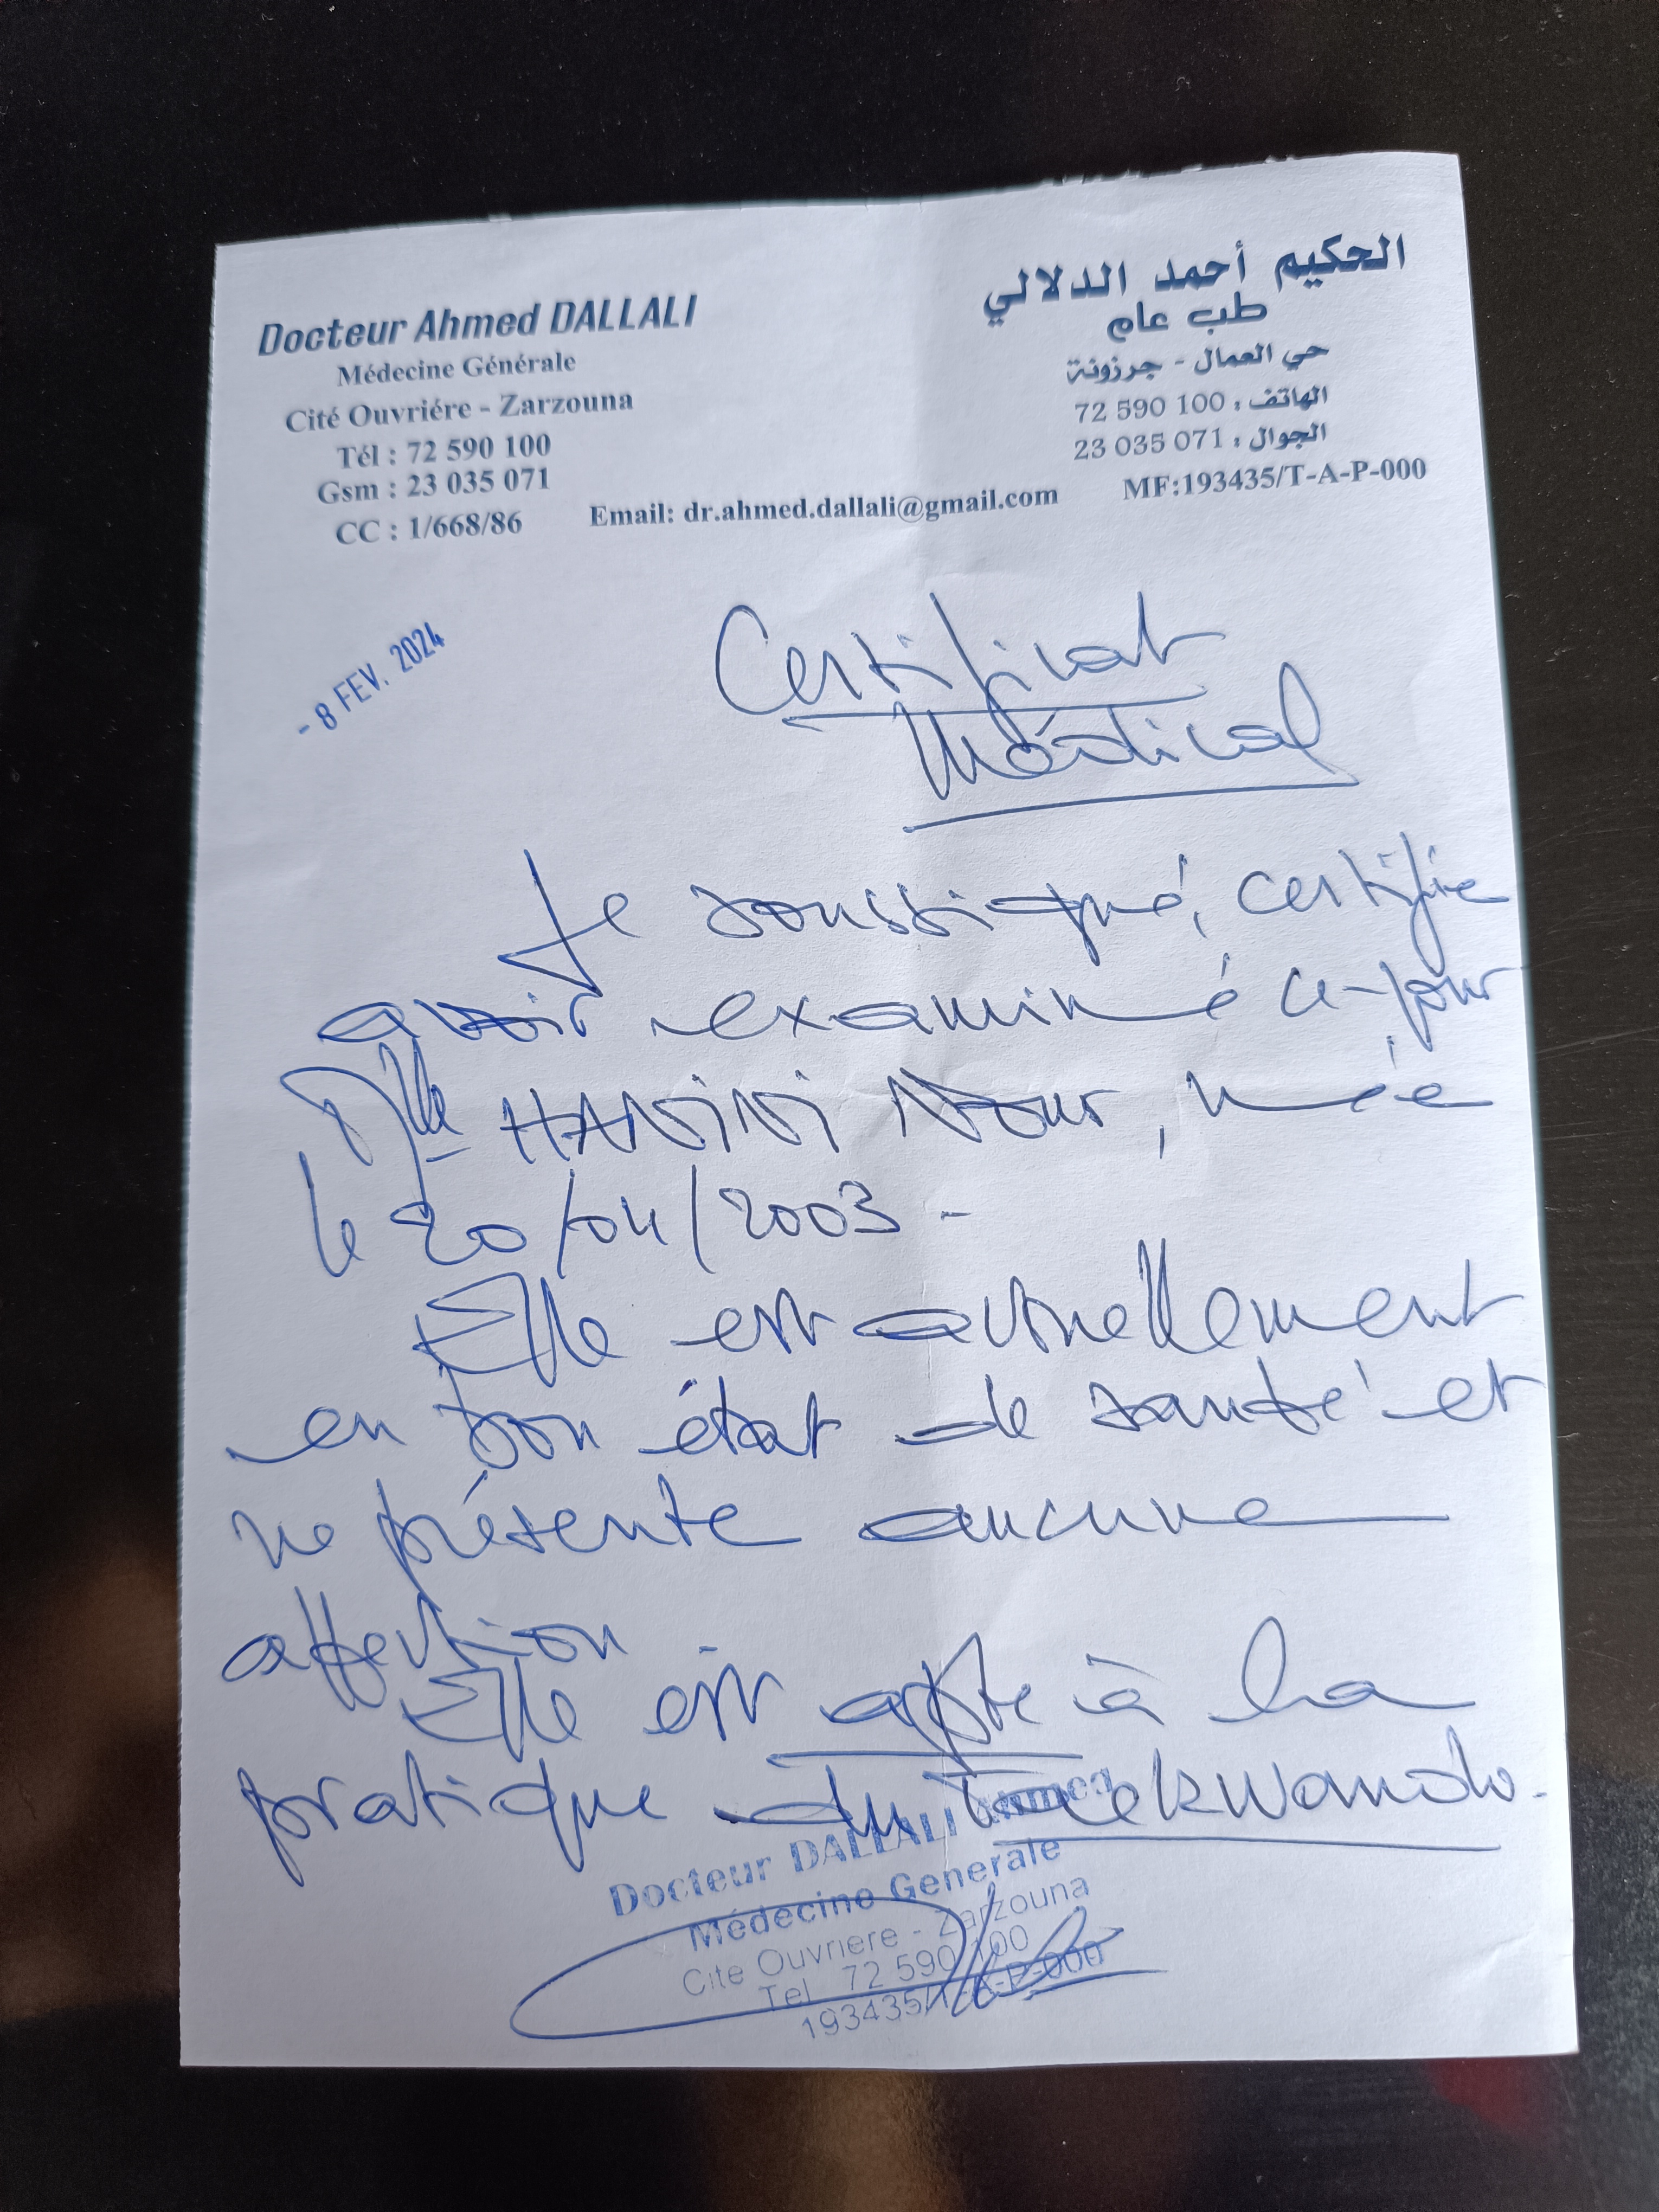 Docteur Ahmed DALLALI
Médecine Générale
Cité Ouvriére - Zarzouna
Tél : 72 590 100
Gsm : 23 035 071
CC : 1/668/86
Email: dr.ahmed.dallali@gmail.com
الحكيم أحمد الدلالي
طب عام
حي العمال - جرزونة
الهاتف : 72 590 100
الجوال : 23 035 071
MF:193435/T-A-P-000
- 8 FEV. 2024
Certificat
Médical
Je soussigné, certifie
avoir examiné ce-jour
Mlle HANINI Nour, née
le 20/04/2003 -
Elle est actuellement
en bon état de santé et
ne présente aucune
affection
Elle est apte à la
pratique du Taekwando.
Docteur DALLALI Ahmed
Médecine Generale
Cite Ouvriere - Zarzouna
Tel 72 590 100
193435/T-A-P-000